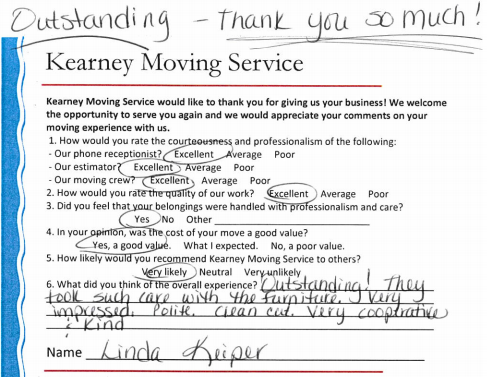 Outstanding - Thank you so much!
Kearney Moving Service
Kearney Moving Service would like to thank you for giving us your business! We welcome
the opportunity to serve you again and we would appreciate your comments on your
moving experience with us.
1. How would you rate the courteousness and professionalism of the following:
- Our phone receptionist? Excellent Average Poor
- Our estimator? Excellent Average Poor
- Our moving crew? Excellent Average Poor
2. How would you rate the quality of our work? Excellent Average Poor
3. Did you feel that your belongings were handled with professionalism and care?
Yes No Other
4. In your opinion, was the cost of your move a good value?
Yes, a good value. What I expected. No, a poor value.
5. How likely would you recommend Kearney Moving Service to others?
Very likely Neutral Very unlikely
6. What did you think of the overall experience? Outstanding! They
took such care with the furniture. Very
impressed. Polite. Clean cut. Very cooperative
& Kind
Name Linda Keiper